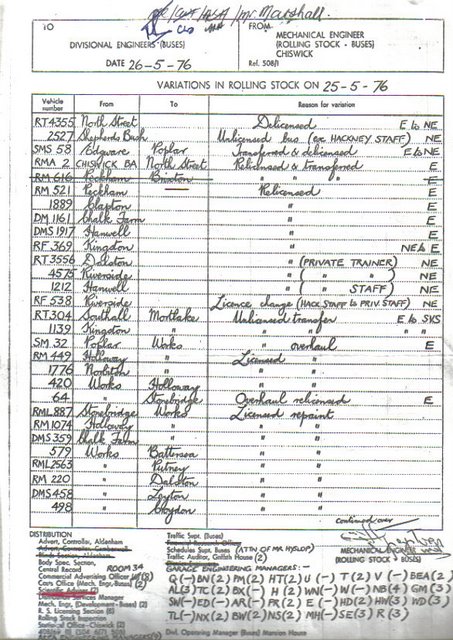 / Mr Marshall.
TO
FROM
DIVISIONAL ENGINEERS (BUSES)
MECHANICAL ENGINEER
(ROLLING STOCK - BUSES)
CHISWICK
DATE 26-5-76
Ref. 508/1
VARIATIONS IN ROLLING STOCK ON 25-5-76
Vehicle number From To Reason for variation
RT4355 North Street Delicensed E to NE
2527 Shepherds Bush Unlicensed bus (ex HACKNEY STAFF) NE
SMS 58 Edgware Poplar Transferred & delicensed E to NE
RMA 2 CHISWICK BA North Street Relicensed & transferred E
RM 616 Peckham Brixton " " " E
RM 521 Peckham Relicensed E
1889 Clapton " E
DM 1161 Chalk Farm " E
DMS 1917 Hanwell " E
RF 369 Kingston " NE to E
RT3556 Dalston " (PRIVATE TRAINER) NE
4575 Riverside " ( " " ) NE
1212 Hanwell " ( " STAFF) NE
RF 538 Riverside Licence change (HACK STAFF to PRIV STAFF) NE
RT304 Southall Mortlake Unlicensed transfer E to SVS
1139 Kingston " " " "
SM 32 Poplar Works " overhaul E
RM 449 Holloway " Licensed "
1776 Norbiton " " "
420 Works Holloway " "
64 " Stonebridge Overhaul relicensed E
RML 887 Stonebridge Works Licensed repaint
RM 1074 Holloway " " "
DMS 359 Chalk Farm " " "
579 Works Battersea " "
RML 2563 " Putney " "
RM 220 " Dalston " "
DMS 458 " Leyton " "
498 " Croydon " "
continued over
DISTRIBUTION
Advert, Controller, Aldenham
Advert, Controller, Camberwell
Body Spec, Section
Central Record ROOM 34
Commercial Advertising Officer
Cars Office (Mech. Engr., Buses) (2)
Scientific Adviser (2)
Services Manager
Mech. Engr, (Development - Buses) (2)
R. S. Licensing Section (8)
Rolling Stock Inspection
Traffic Supt. (Buses)
Schedules Supt. Buses (ATTN OF MR HYSLOP)
Traffic Auditor, Griffith House (2)
MECHANICAL ENGINEER
(ROLLING STOCK - BUSES)
GARAGE ENGINEERING MANAGERS:-
Q(-) BN(2) PM(2) HT(2) U(-) T(2) V(-) BEA(2)
AL(3) TC(2) BX(-) H(2) WN(-) W(-) NB(4) GM(3)
SW(-) ED(-) AR(-) PR(2) E(-) HD(2) HW(3) WD(3)
TL(-) NX(2) BW(2) NS(2) MH(-) SE(3) R(3)
Divl. Operating Manager (Buses) Mansion House